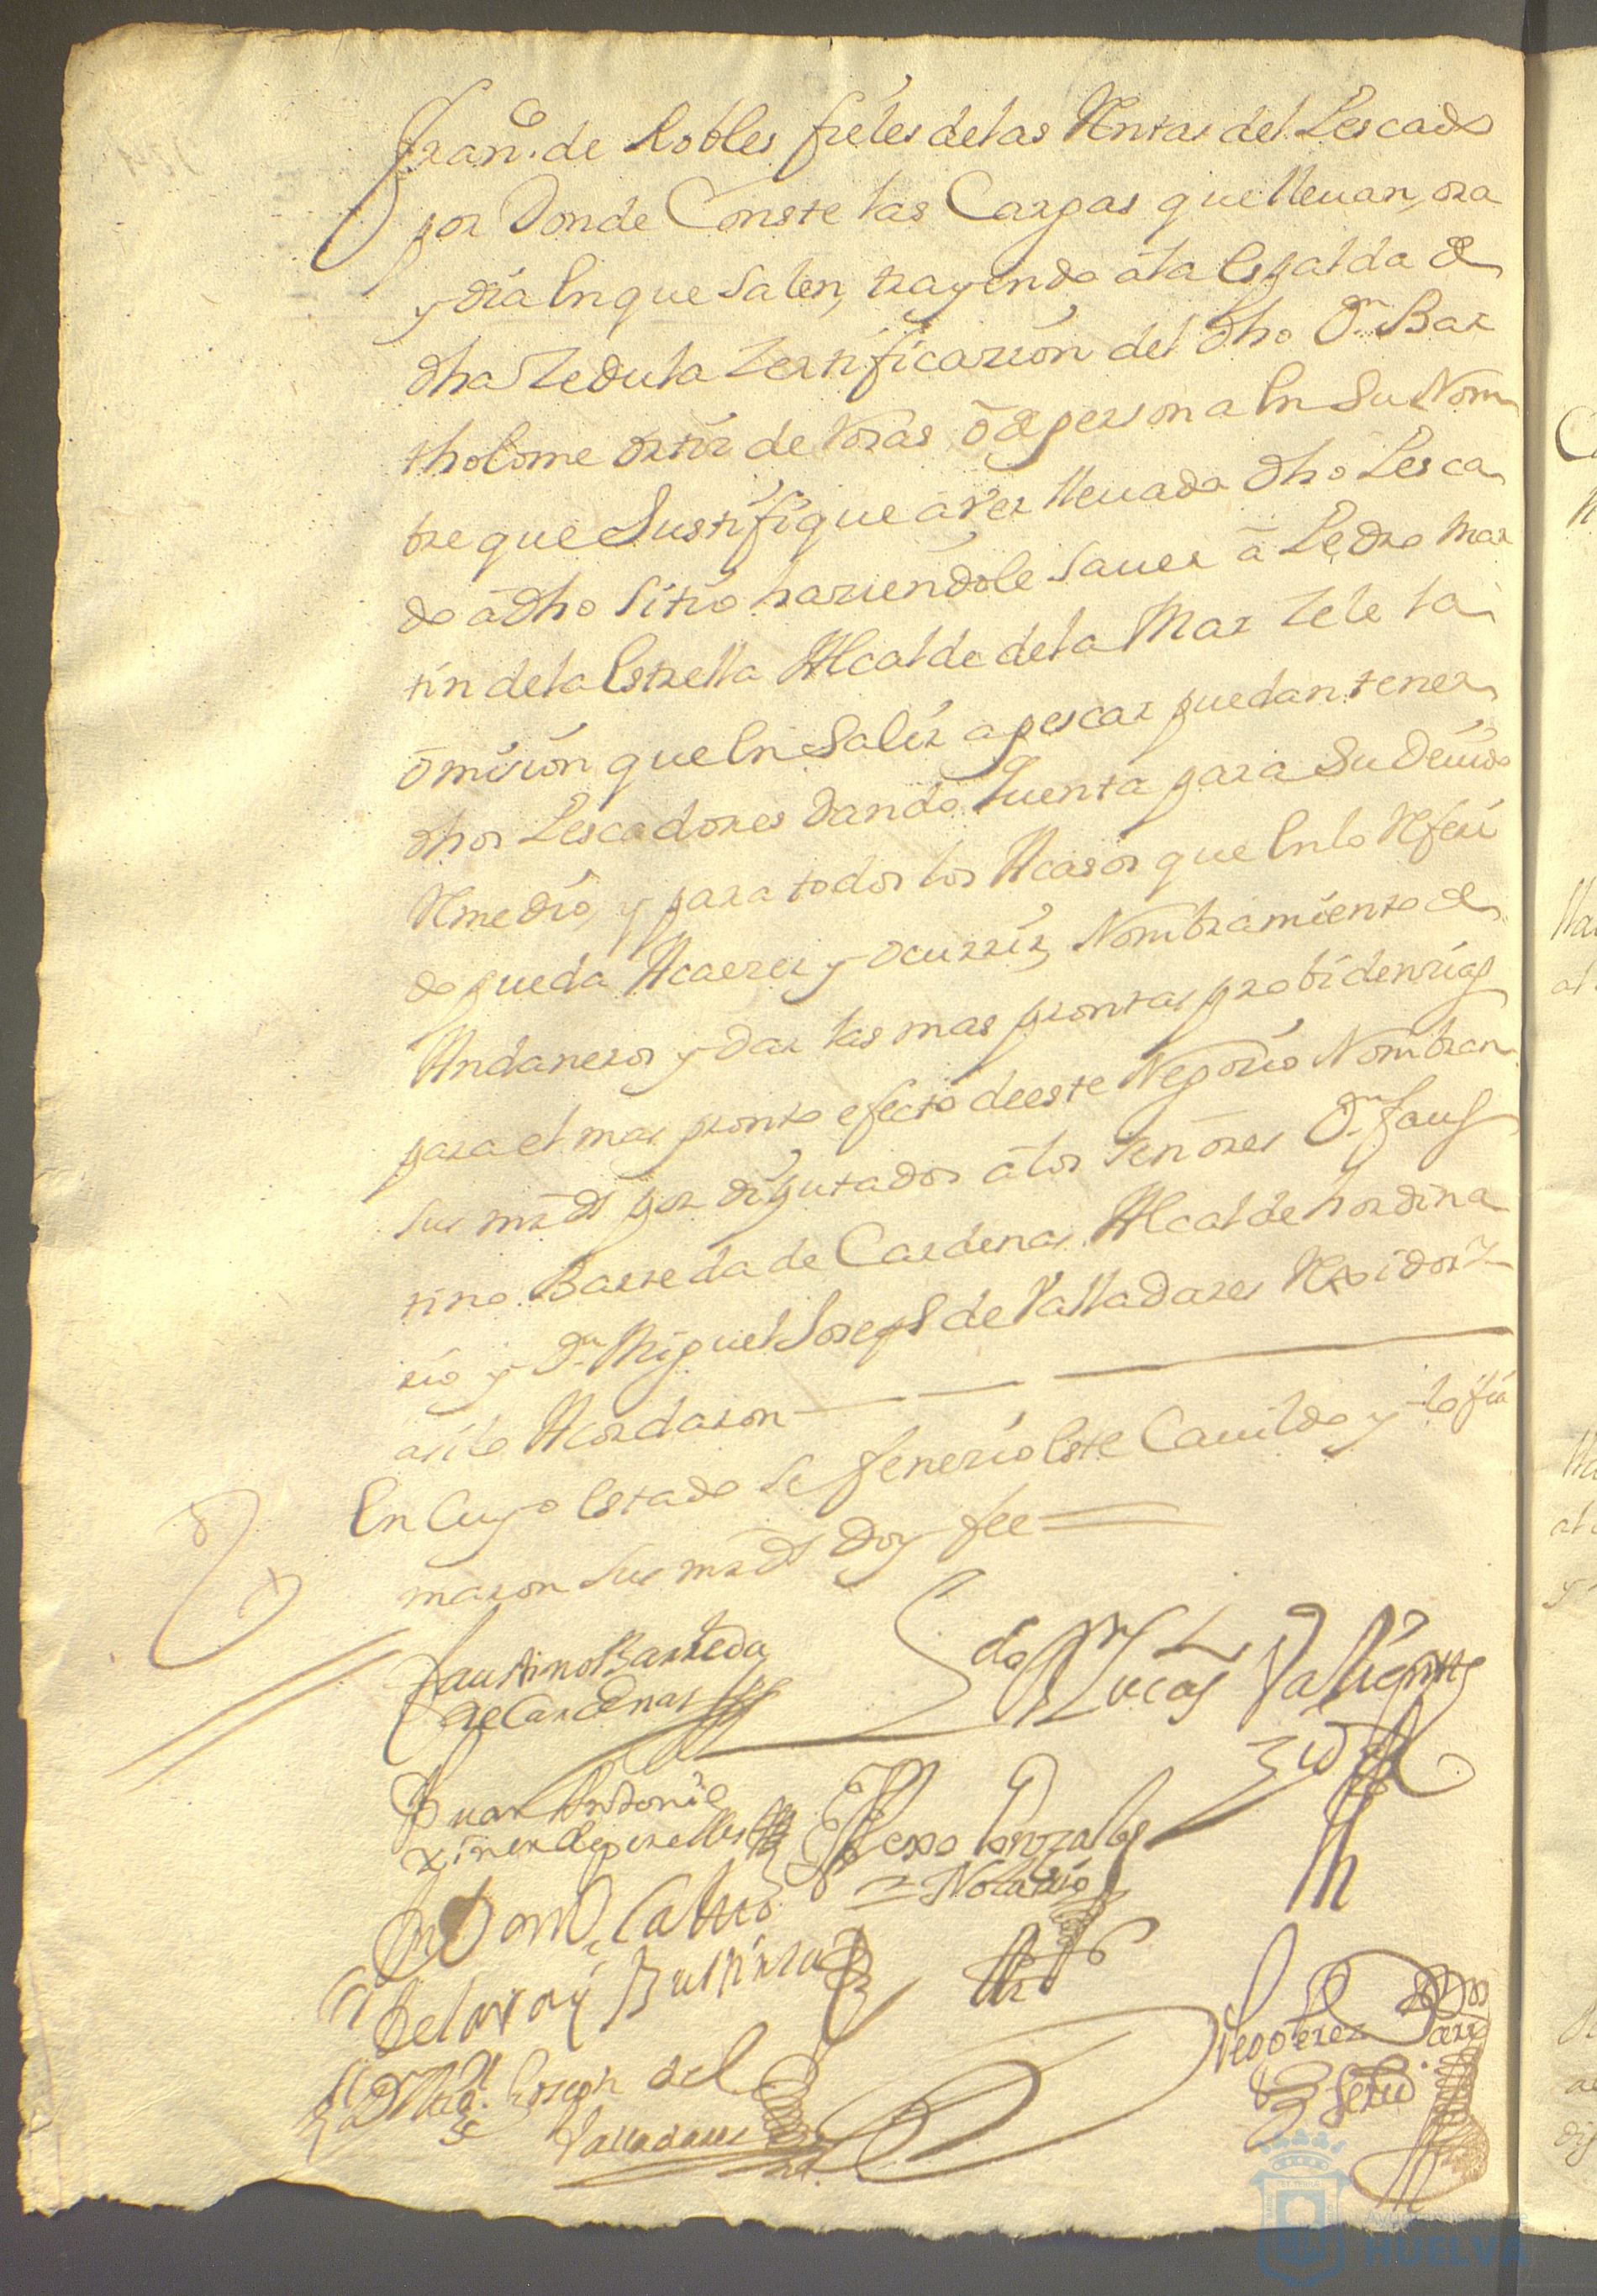 Fran.co de Robles fieles de las Rentas del Pescado
por Donde Conste las Cargas que lleuan, ora
y dia en que salen, trayendo á la espalda de
dha Zedula Zertificazion del dho D.n Bar
tholome ortiz de Voras, ó de persona en su Nom
bre que Justifique aver lleuado dho Pesca
do á dho sitio haziendole sauer á Pedro Mar
tin de la Estrella Alcalde de la Mar Zele la
omision que en salir a pescar puedan tener
dhos Pescadores dando quenta para su deuido
Remedio, y para todos los Acasos que en lo Referi
do pueda Acaezer y ocurrir, Nombramiento de
Andaneros y dar las mas prontas probidenzias
para el mas pronto efecto de este Negozio Nombran
sus mrds por diputados á los señores D.n faus
tino Barreda de Cardenas Alcalde hordina
rio y D.n Miguel Joseph de Valladares Rexidor
asi lo Acordaron
En Cuyo estado se fenezio este Cauildo y lo fir
maron sus mrds doy fee
Faustino Barreda
de Cardenas
Lucas Valiente
Juan Antonio
Alexo Gonzales
Notario
D.n Mig.l Joseph del
Valladares
Diego Perez
AYUNTAMIENTO DE
HUELVA